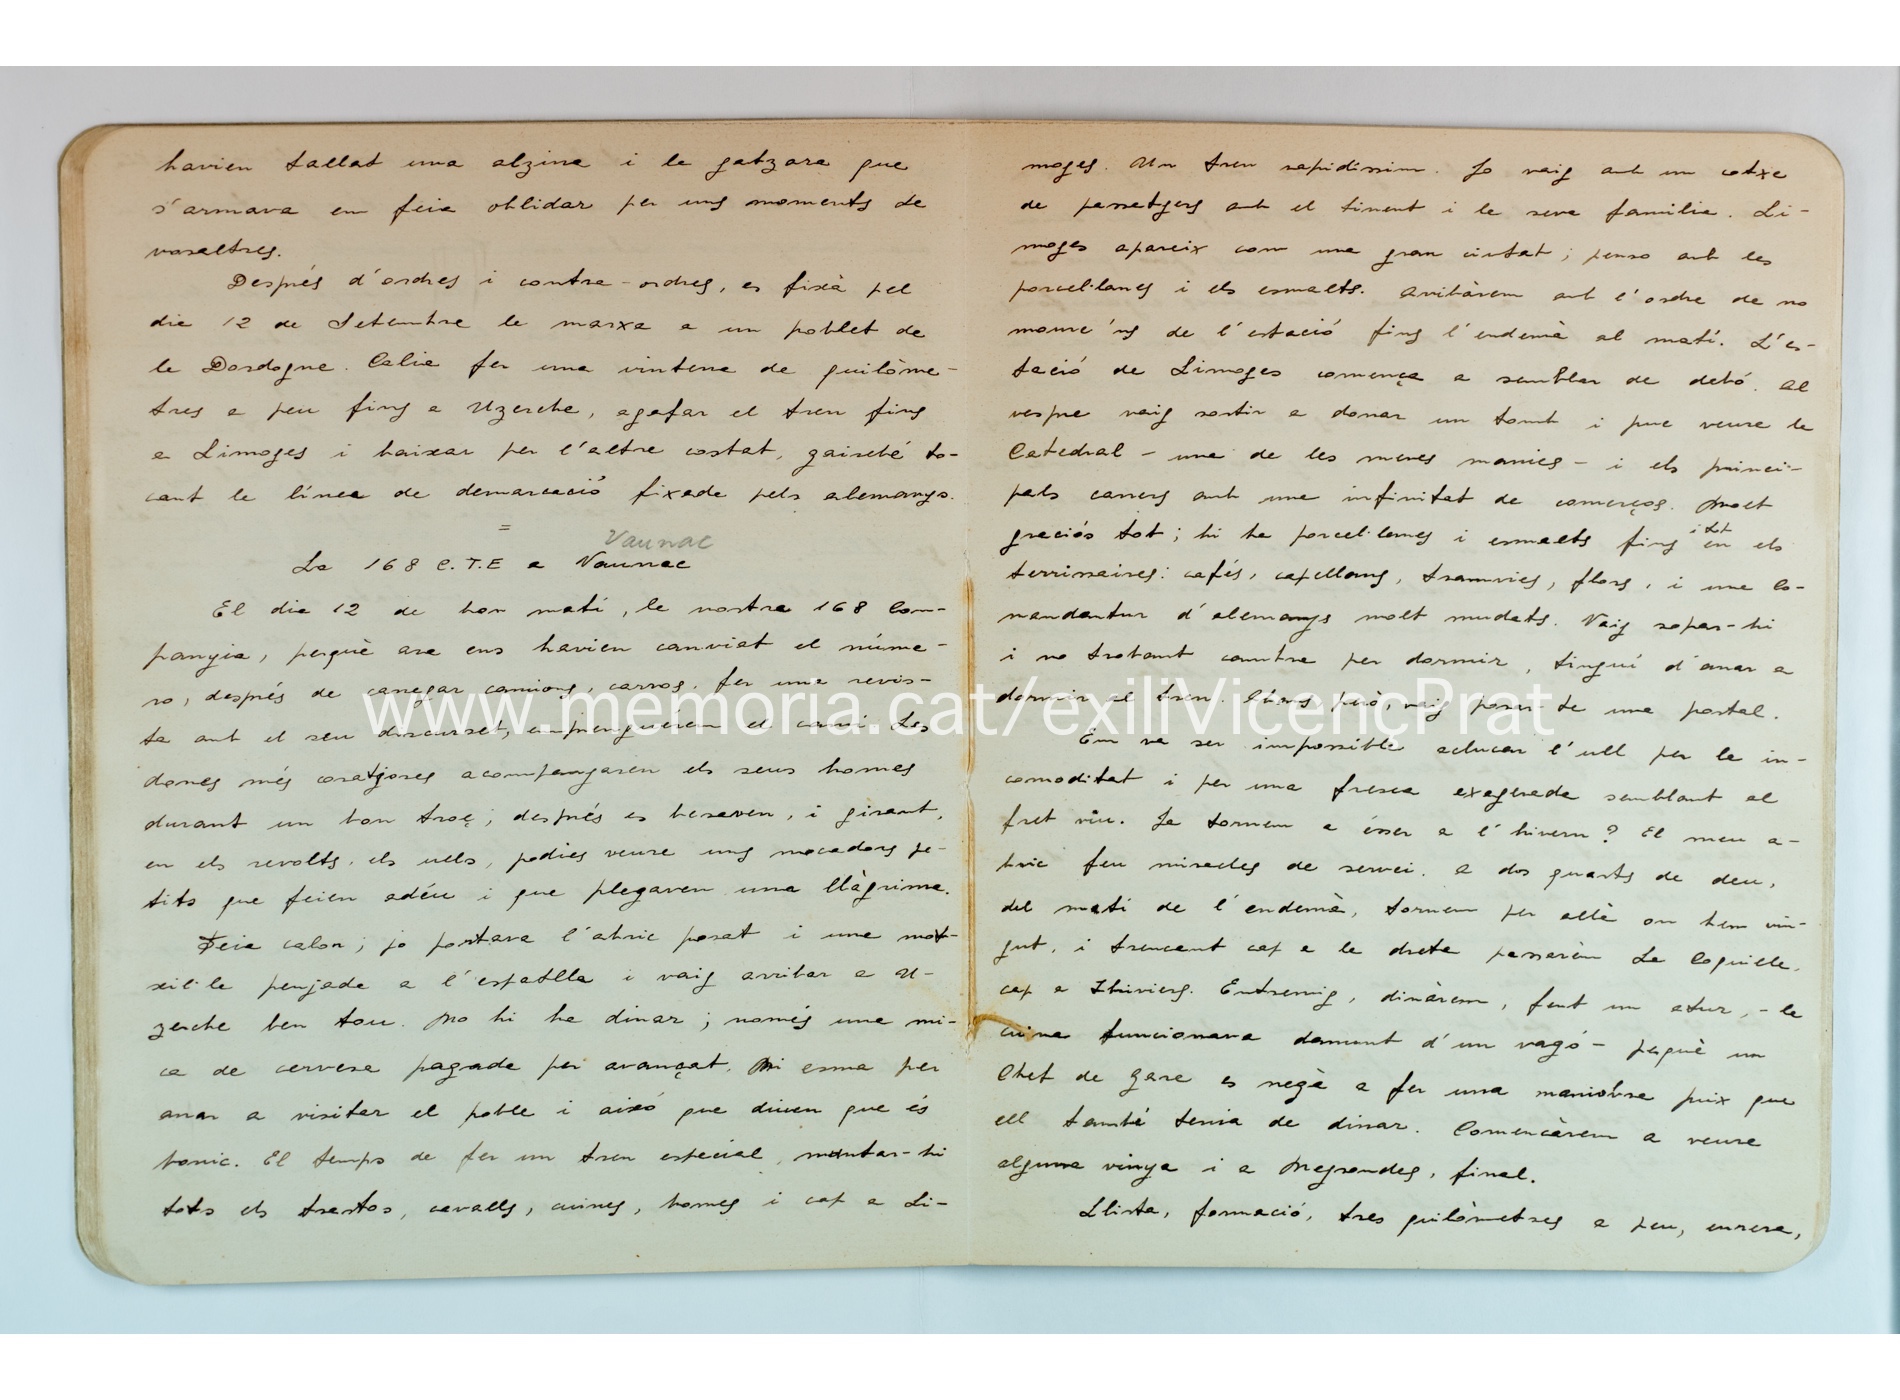 havien tallat una alzina i la gatzara que
s'armava em feia oblidar per uns moments de
vosaltres.
Després d'ordres i contra-ordres, es fixà pel
dia 12 de Setembre la marxa a un poblet de
la Dordogne. Calia fer una vintena de quilòme-
tres a peu fins a Uzerche, agafar el tren fins
a Limoges i baixar per l'altre costat, gairebé to-
cant la línea de demarcació fixada pels alemanys.
=
Vaunac
La 168 C.T.E a Vaunac
El dia 12 de bon matí, la nostra 168 Com-
panyia, perquè ara ens havien canviat el núme-
ro, després de carregar camions, carros, fer una revis-
ta amb el seu discurset, emprenguérem el camí. Les
dones més coratjoses acompanyaren els seus homes
durant un bon troç; després es besaven, i girant,
en els revolts, els ulls, podies veure uns mocadors pe-
tits que feien adéu i que plegaven una llàgrima.
Feia calor; jo portava l'abric posat i una mot-
xil·la penjada a l'espatlla i vaig arribar a U-
zerche ben tou. No hi ha dinar; només una mi-
ca de cervesa pagada per avançat. Ni esma per
anar a visitar el poble i això que diuen que és
bonic. El temps de fer un tren especial, muntar-hi
tots els trastos, cavalls, cuines, homes i cap a Li-
moges. Un tren rapidíssim. Jo vaig amb un cotxe
de passatgers amb el tinent i la seva família. Li-
moges apareix com una gran ciutat; penso amb les
porcel·lanes i els esmalts. Arribàrem amb l'ordre de no
moure'ns de l'estació fins l'endemà al matí. L'es-
tació de Limoges comença a semblar de debó. Al
vespre vaig sortir a donar un tomb i puc veure la
Catedral - una de les meves manies - i els princi-
pals carrers amb una infinitat de comerços. Molt
graciós tot; hi ha porcel·lanes i esmalts fins i tot en els
terrissaires: cafés, capellans, tramvies, flors, i una Co-
mandantur d'alemanys molt mudats. Vaig sopar-hi
i no trobant cambra per dormir, tinguí d'anar a
dormir al tren. Abans però, vaig posar-te una postal.
Em va ser impossible aclucar l'ull per la in-
comoditat i per una fresca exagerada semblant al
fret viu. Ja tornem a ésser a l'hivern? El meu a-
bric feu miracles de servei. A dos quarts de deu,
del matí de l'endemà, tornem per allà on hem vin-
gut, i trencant cap a la dreta passarem La Coquille,
cap a Thiviers. Entremig, dinàrem, fent un atur, - la
cuina funcionava damunt d'un vagó - perquè un
Chef de gare es negà a fer una maniobra puix que
ell també tenia de dinar. Començàrem a veure
alguna vinya i a Negrondes, final.
Llista, formació, tres quilòmetres a peu, enrera,
www.memoria.cat/exiliVicençPrat